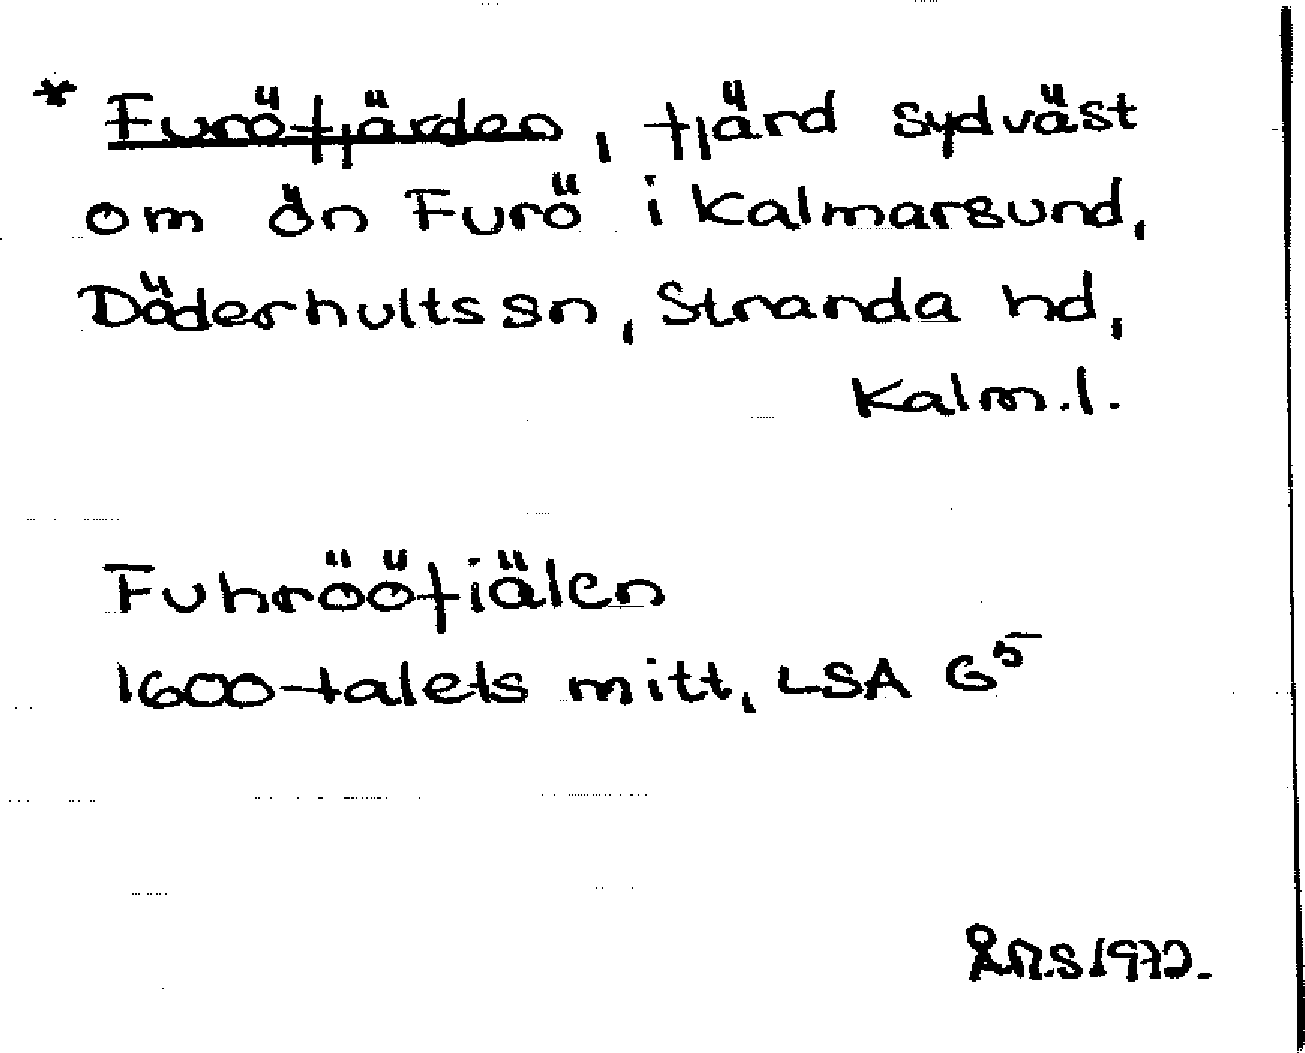 * Furöfjärden, fjärd sydväst
om ön Furö i Kalmarsund,
Döderhults sn, Stranda hd,
Kalm.l.
Fuhrööfiälen
1600-talets mitt, LSA G5
1972.